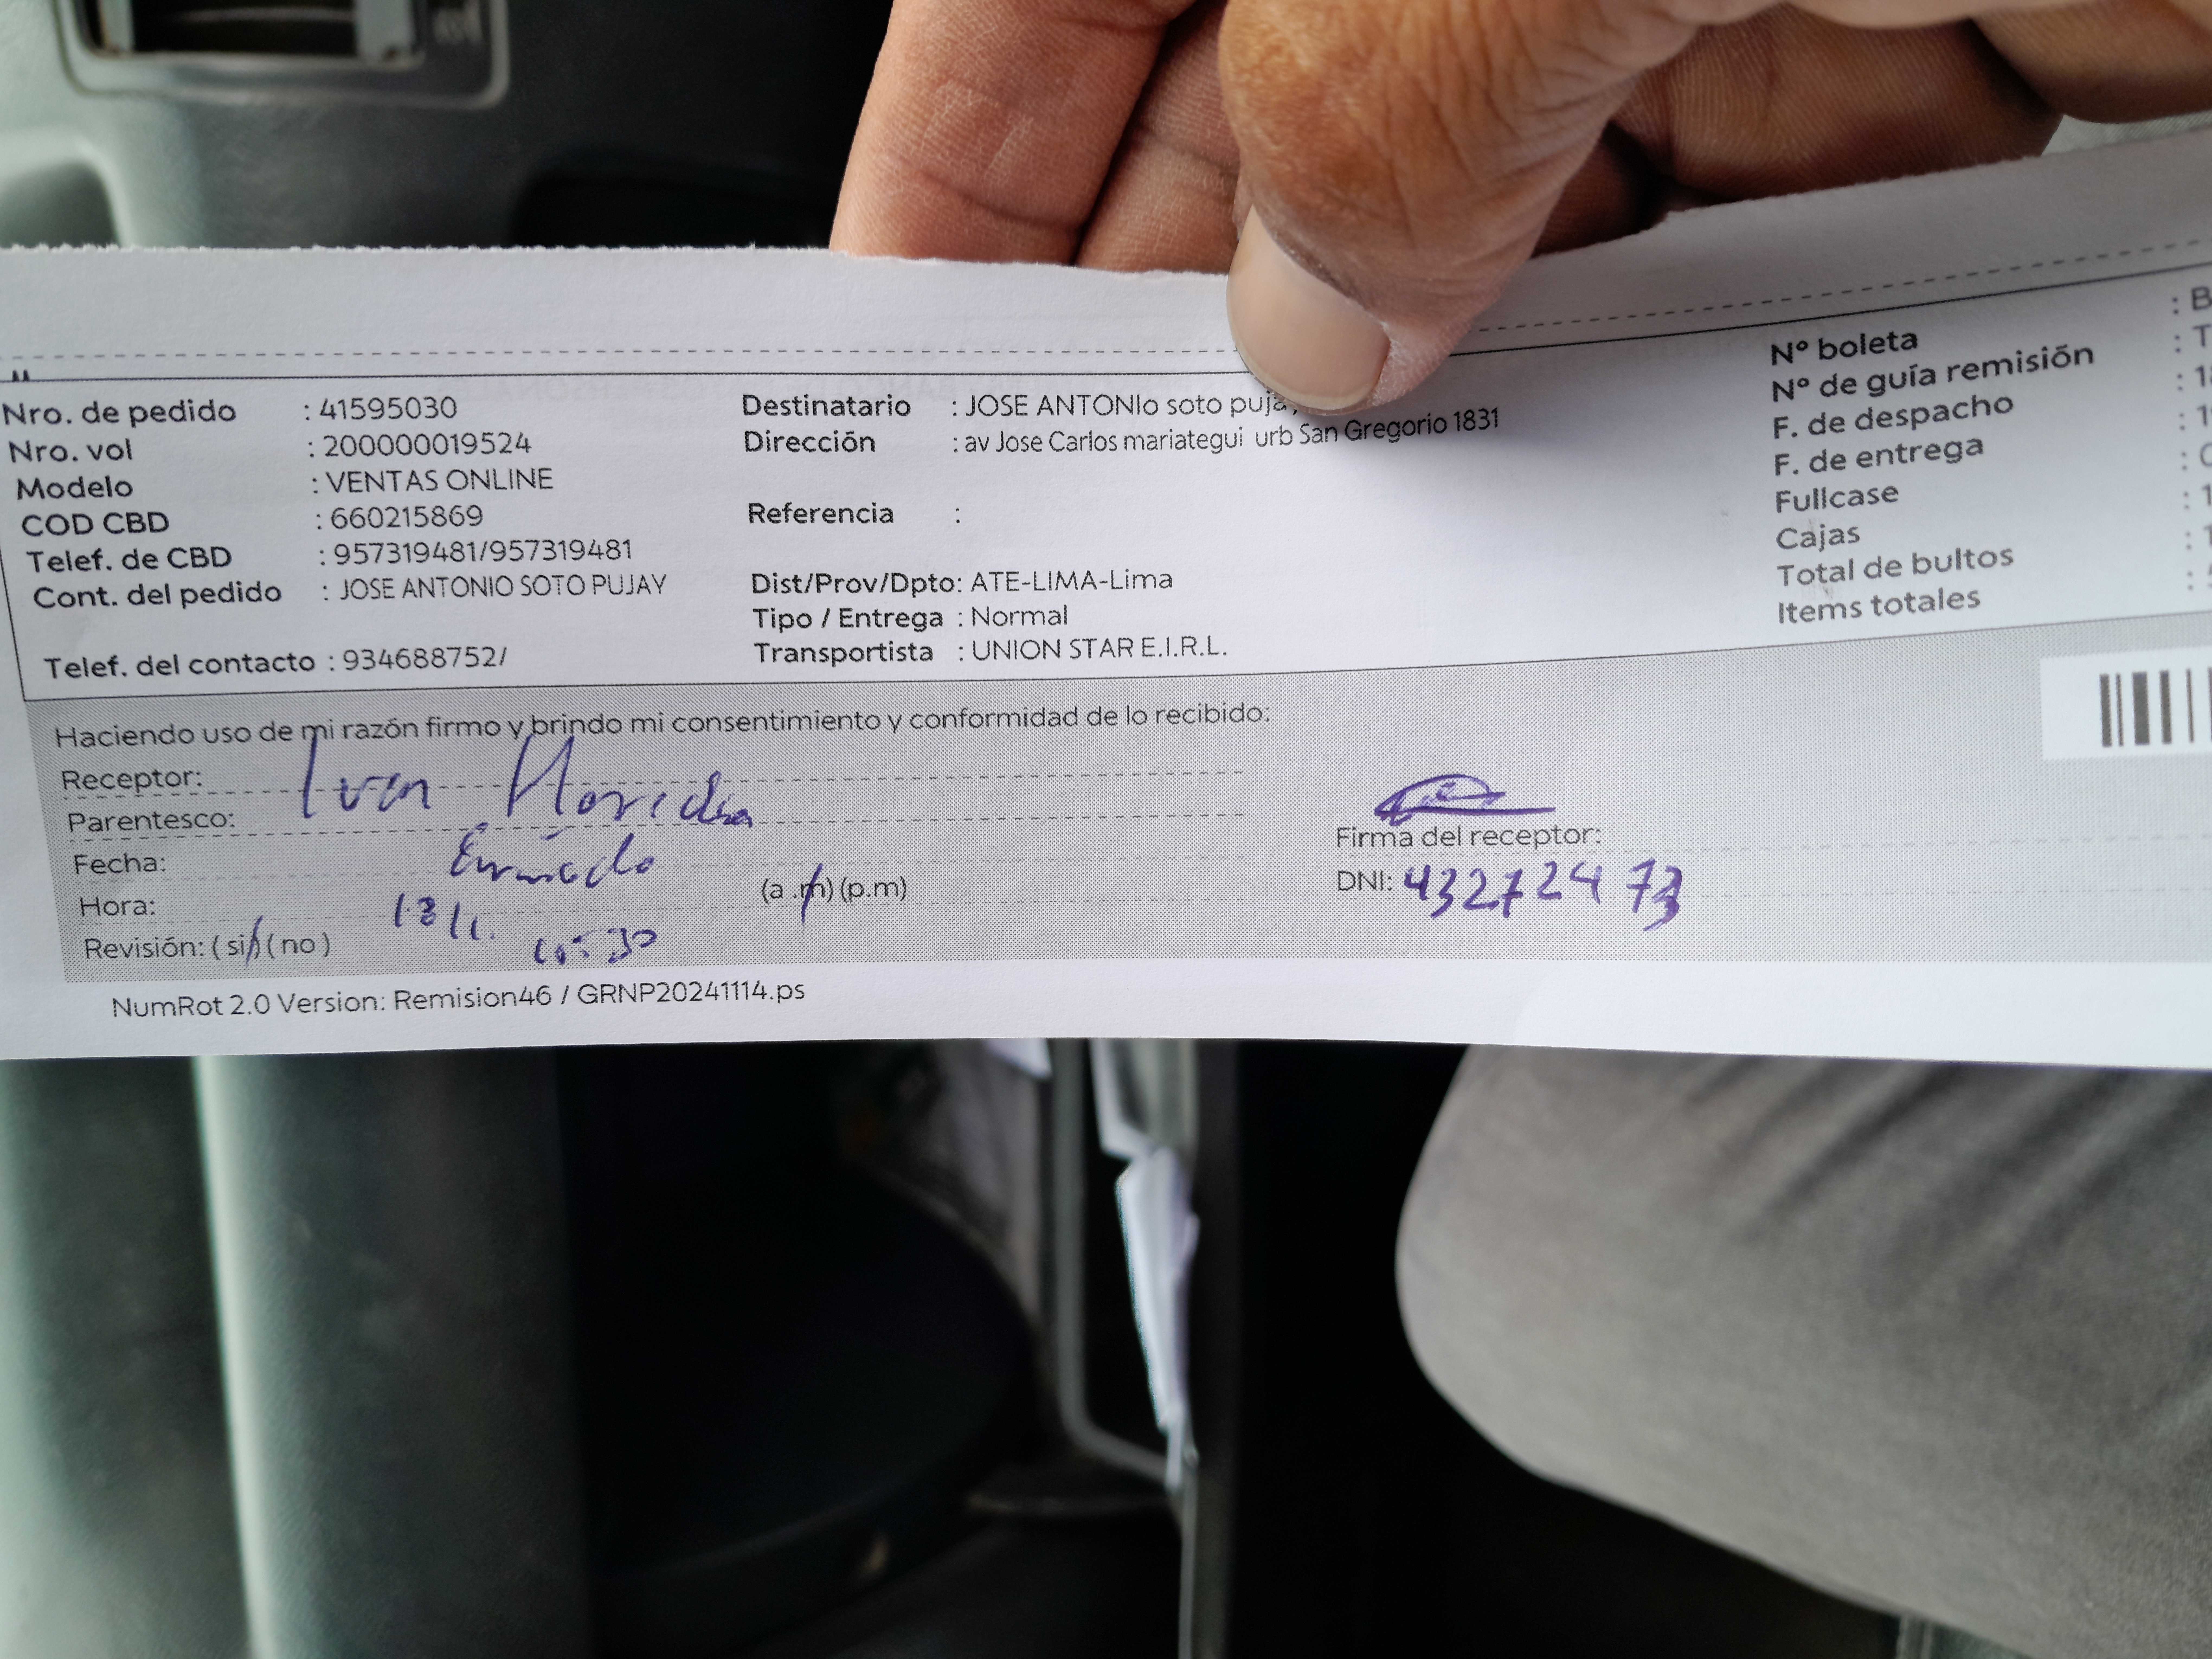 Nro. de pedido : 41595030
Nro. vol : 200000019524
Modelo : VENTAS ONLINE
COD CBD : 660215869
Telef. de CBD : 957319481/957319481
Cont. del pedido : JOSE ANTONIO SOTO PUJAY
Telef. del contacto : 934688752/
Destinatario : JOSE ANTONIo soto puja
Dirección : av Jose Carlos mariategui urb San Gregorio 1831
Referencia :
Dist/Prov/Dpto: ATE-LIMA-Lima
Tipo / Entrega : Normal
Transportista : UNION STAR E.I.R.L.
N° boleta : B
N° de guía remisión : T
F. de despacho : 1
F. de entrega : 1
Fullcase
Cajas : 1
Total de bultos
Items totales
Haciendo uso de mi razón firmo y brindo mi consentimiento y conformidad de lo recibido:
Receptor: Ivan
Parentesco:
Fecha:
Hora: (a.m) (p.m)
Revisión: (si) (no)
10:30
Firma del receptor:
DNI:
NumRot 2.0 Version: Remision46 / GRNP20241114.ps